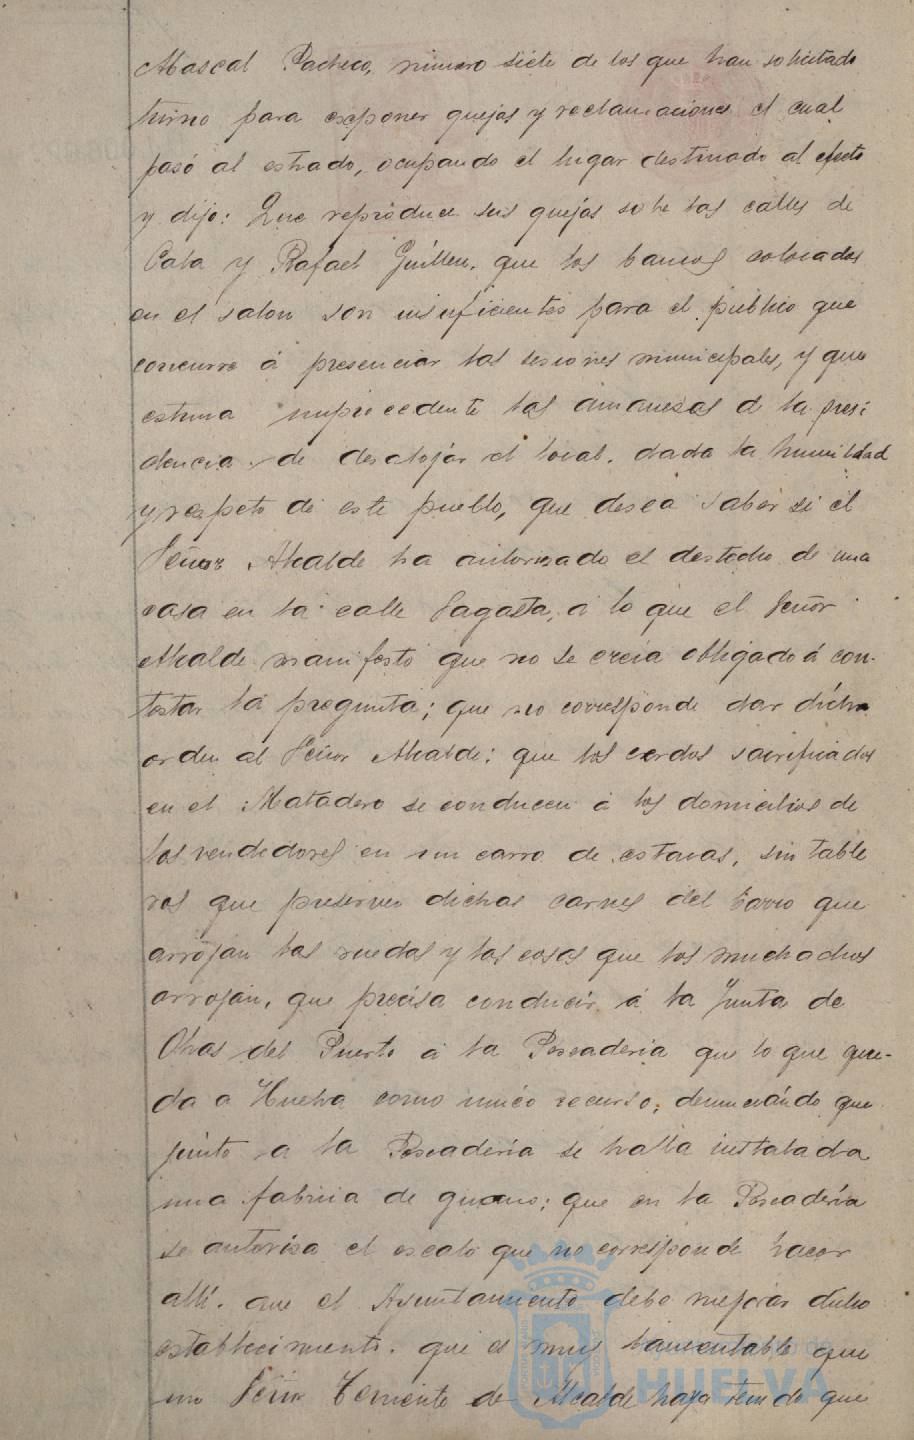 Abascal Pacheco, número siete de los que han solicitado
turno para exponer quejas y reclamaciones el cual
pasó al estrado, ocupando el lugar destinado al efecto
y dijo: Que reproduce sus quejas sobre las calles de
Cala y Rafael Guillen. que los bancos colocados
en el salon son insuficientes para el público que
concurre á presenciar las sesiones municipales, y que
estima improcedente las amanesas de la presi
dencia de desalojar el local. dada la humildad
y respeto de este pueblo, que desea saber si el
Señor Alcalde ha autorisado el destecho de una
casa en la calle Sagasta, á lo que el Señor
Alcalde manifestó que no se creia obligado á con-
testar la pregunta; que no corresponde dar dicha
orden al Señor Alcalde: que los cerdos sacrificados
en el Matadero se conducen á los domicilios de
los vendedores en un carro de estacas, sin table
ros que preserven dichas carnes del barro que
arrojan las ruedas y las cosas que los muchachos
arrojan, que precisa conducir á la Junta de
Obras del Puerto á la Pescaderia que lo que que-
da a Huelva como unico recurso; denunciando que
junto a la Pescadería se halla instalada
una fabrica de guano; que en la Pescadería
se autorisa el escalo que no corresponde hacer
allí. que el Ayuntamiento debe mejorar dicho
establecimiento. que es muy lamentable que
un Señor Teniente de Alcalde haya tenido que
Ayuntamiento de
HUELVA